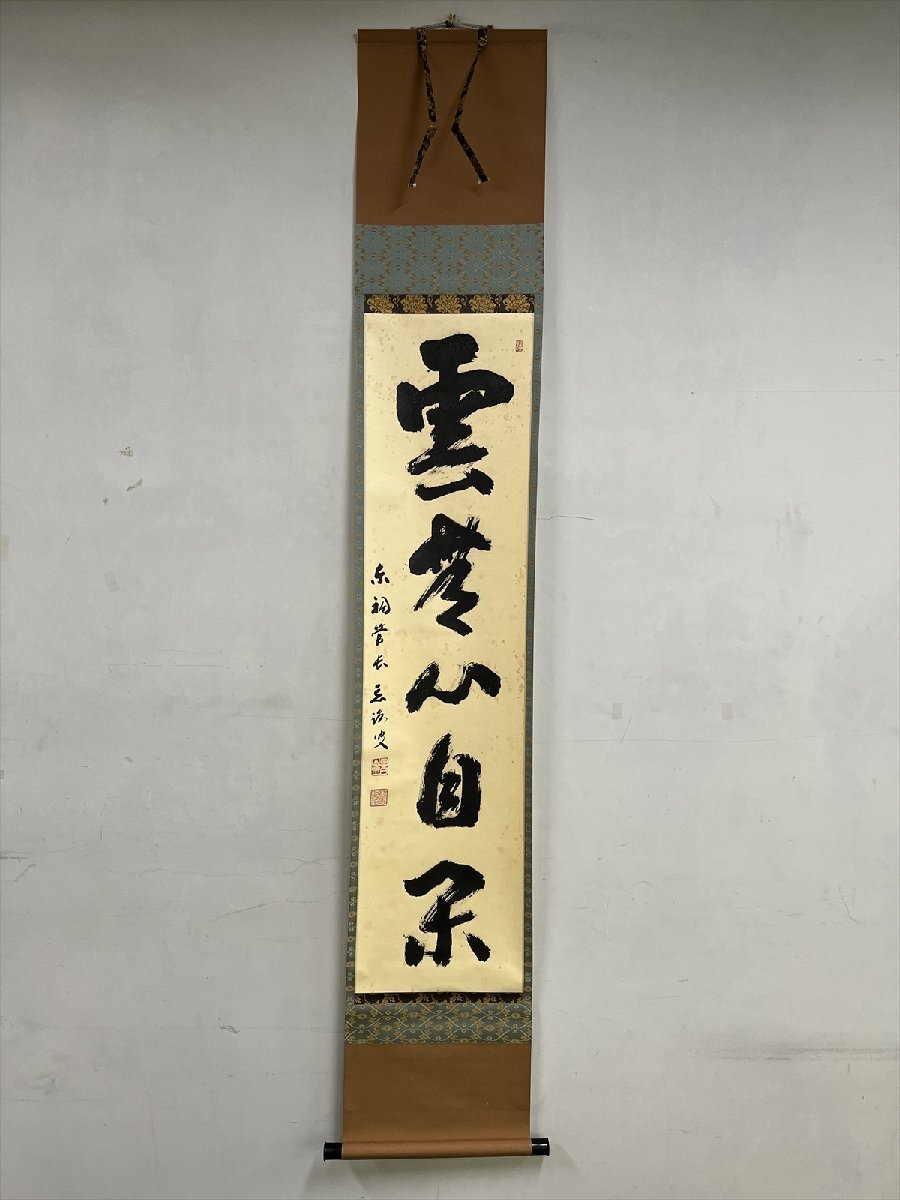 雲無心自閑
東福管長 叟